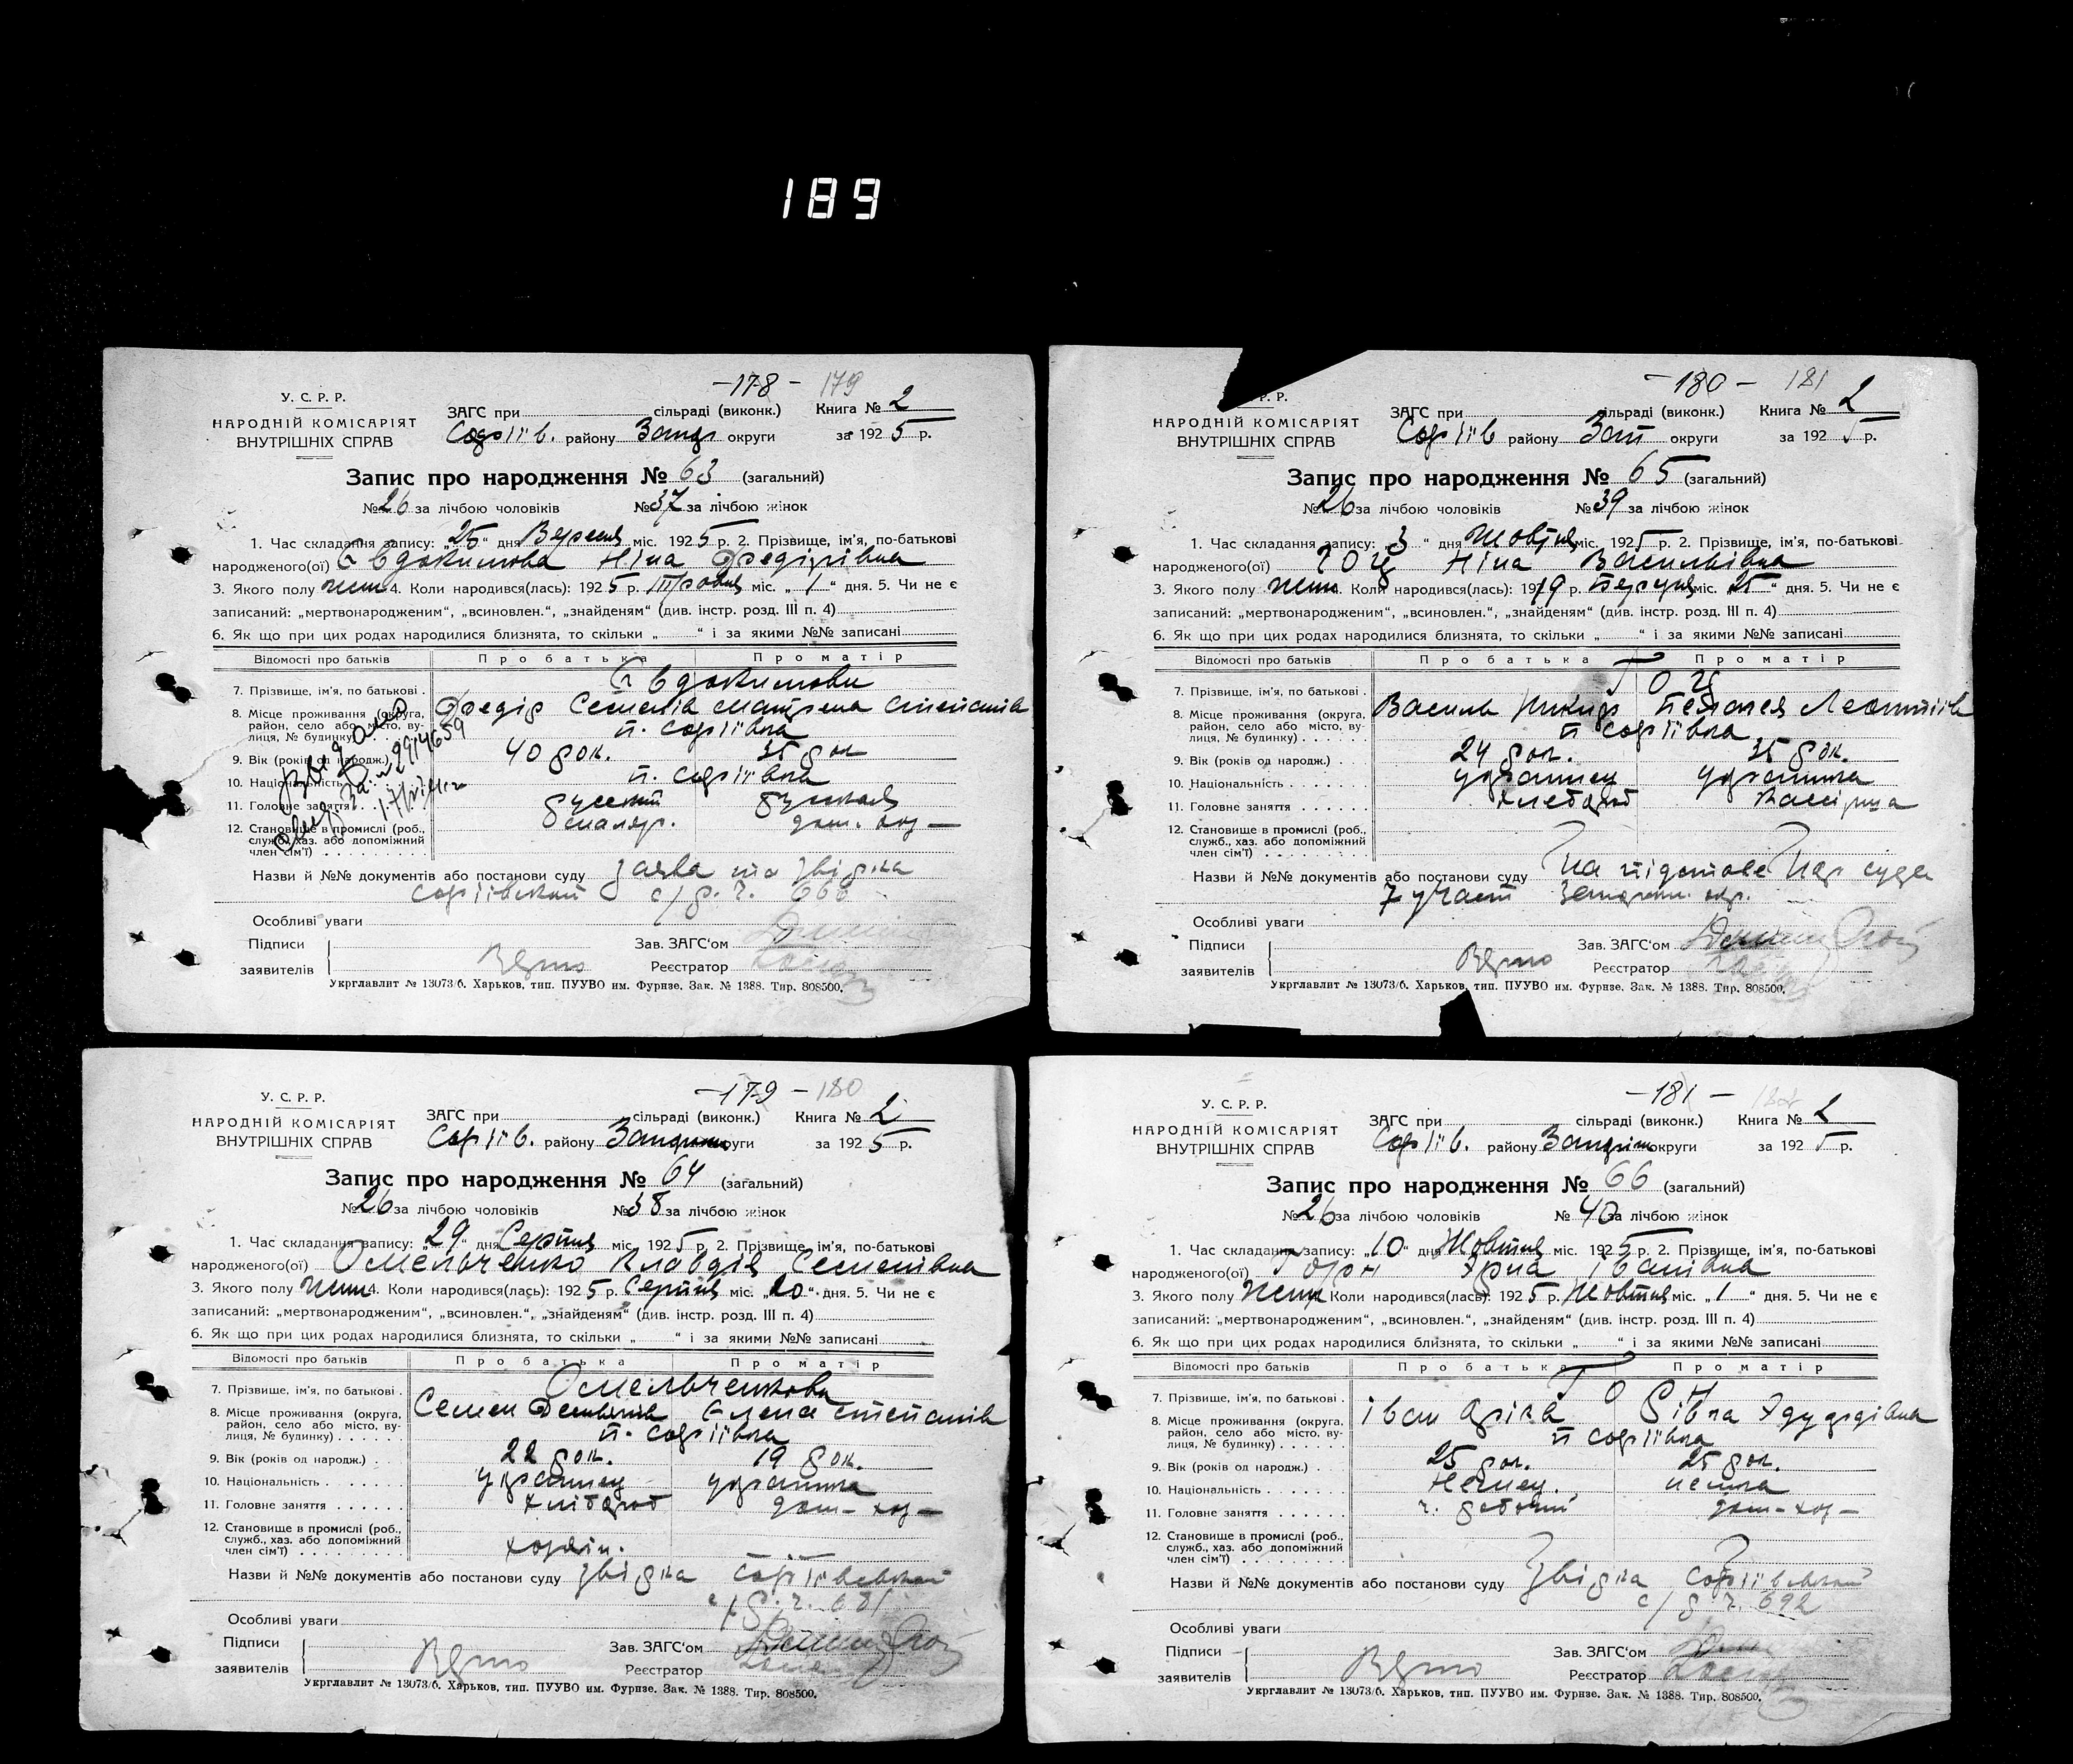 189
-178- 179
У. С. Р. Р.
НАРОДНІЙ КОМІСАРІЯТ
ВНУТРІШНІХ СПРАВ
ЗАГС при сільраді (виконк.) Книга № 2
Софіїв. району округи за 1925 р.
Запис про народження № 63 (загальний)
№ 26 за лічбою чоловіків № 37 за лічбою жінок
1. Час складання запису: „25“ дня Вересня міс. 1925 р. 2. Прізвище, ім'я, по-батькові
народженого(ої) Євдокимова Ніна Федірівна
3. Якого полу жін 4. Коли народився(лась): 1925 р. Травня міс. „1“ дня. 5. Чи не є
записаний: „мертвонародженим“, „всиновлен.“, „знайденям“ (див. інстр. розд. III п. 4)
6. Як що при цих родах народилися близнята, то скільки „ “ і за якими №№ записані
Відомості про батьків Про батька Про матір
7. Прізвище, ім'я, по батькові . Євдокимови
Федір Семенів Матрена Степанів
8. Місце проживання (округа, район, село або місто, вулиця, № будинку) п. Софіївка
9. Вік (років од народж.) 40 рок. 35 рок
п. Софіївка
10. Національність
11. Головне заняття русский русская
12. Становище в промислі (роб., служб., хаз. або допоміжний член сім'ї) маляр. дом. хоз —
Назви й №№ документів або постанови суду Заява та звідка
Софіївской с/р. ч. 666
Особливі уваги
Підписи Зав. ЗАГС'ом
заявителів Реєстратор
Укрглавлит № 13073/б. Харьков, тип. ПУУВО им. Фурнзе. Зак. № 1388. Тир. 808500.
-180- 181
Р. Р.
НАРОДНІЙ КОМІСАРІЯТ
ВНУТРІШНІХ СПРАВ
ЗАГС при сільраді (виконк.) Книга № 2
Софіїв району Зап округи за 1925 р.
Запис про народження № 65 (загальний)
№ 26 за лічбою чоловіків № 39 за лічбою жінок
1. Час складання запису: „3“ дня Жовтня міс. 1925 р. 2. Прізвище, ім'я, по-батькові
народженого(ої) Ніна Васильівна
3. Якого полу жін 4. Коли народився(лась): 1919 р. міс. 25 “ дня. 5. Чи не є
записаний: „мертвонародженим“, „всиновлен.“, „знайденям“ (див. інстр. розд. III п. 4)
6. Як що при цих родах народилися близнята, то скільки „ “ і за якими №№ записані
Відомості про батьків Про батька Про матір
7. Прізвище, ім'я, по батькові .
Василь Пелагея Леонтіїв
8. Місце проживання (округа, район, село або місто, вулиця, № будинку) п Софіївка
9. Вік (років од народж.) 24 рок. 35 рок.
10. Національність українец українка
11. Головне заняття хлебороб
12. Становище в промислі (роб., служб., хаз. або допоміжний член сім'ї)
Назви й №№ документів або постанови суду На підставе Нар суда
7 участ окр.
Особливі уваги
Підписи Зав. ЗАГС'ом
заявителів Реєстратор
Укрглавлит № 13073/б. Харьков, тип. ПУУВО им. Фурнзе. Зак. № 1388. Тир. 808500.
-179- 180
У. С. Р. Р.
НАРОДНІЙ КОМІСАРІЯТ
ВНУТРІШНІХ СПРАВ
ЗАГС при сільраді (виконк.) Книга № 2
Софіїв. району округи за 1925 р.
Запис про народження № 64 (загальний)
№ 26 за лічбою чоловіків № 38 за лічбою жінок
1. Час складання запису: „29“ дня Серпня міс. 1925 р. 2. Прізвище, ім'я, по-батькові
народженого(ої) Омельченко Клавдія Семенівна
3. Якого полу жін 4. Коли народився(лась): 1925 р. Серпня міс. „20“ дня. 5. Чи не є
записаний: „мертвонародженим“, „всиновлен.“, „знайденям“ (див. інстр. розд. III п. 4)
6. Як що при цих родах народилися близнята, то скільки „ “ і за якими №№ записані
Відомості про батьків Про батька Про матір
7. Прізвище, ім'я, по батькові . Омельченкови
Семен Елена Степанів
8. Місце проживання (округа, район, село або місто, вулиця, № будинку) п. Софіївка
9. Вік (років од народж.) 22 рок. 19 рок.
10. Національність українец українка
11. Головне заняття хлібороб дом- хоз —
12. Становище в промислі (роб., служб., хаз. або допоміжний член сім'ї) хозяін.
Назви й №№ документів або постанови суду Звідка Софіївськой
с/р. ч. 681
Особливі уваги
Підписи Зав. ЗАГС'ом
заявителів Реєстратор
Укрглавлит № 13073/б. Харьков, тип. ПУУВО им. Фурнзе. Зак. № 1388. Тир. 808500.
-181-
У. С. Р. Р.
НАРОДНІЙ КОМІСАРІЯТ
ВНУТРІШНІХ СПРАВ
ЗАГС при сільраді (виконк.) Книга № 2
Софіїв. району округи за 1925 р.
Запис про народження № 66 (загальний)
№ 26 за лічбою чоловіків № 40 за лічбою жінок
1. Час складання запису: „10“ дня Жовтня міс. 1925 р. 2. Прізвище, ім'я, по-батькові
народженого(ої) Горн Ірма Іванівна
3. Якого полу жін 4. Коли народився(лась): 1925 р. Жовтня міс. „1“ дня. 5. Чи не є
записаний: „мертвонародженим“, „всиновлен.“, „знайденям“ (див. інстр. розд. III п. 4)
6. Як що при цих родах народилися близнята, то скільки „ “ і за якими №№ записані
Відомості про батьків Про батька Про матір
7. Прізвище, ім'я, по батькові . Горн
Іван Едуардівна
8. Місце проживання (округа, район, село або місто, вулиця, № будинку) п Софіївка
9. Вік (років од народж.) 25 рок. 25 рок.
10. Національність Немец. немка
11. Головне заняття ч. рабочий дом-хоз —
12. Становище в промислі (роб., служб., хаз. або допоміжний член сім'ї)
Назви й №№ документів або постанови суду Звідка Софіївской
с/р. ч. 692
Особливі уваги
Підписи Зав. ЗАГС'ом
заявителів Реєстратор
Укрглавлит № 13073/б. Харьков, тип. ПУУВО им. Фурнзе. Зак. № 1388. Тир. 808500.